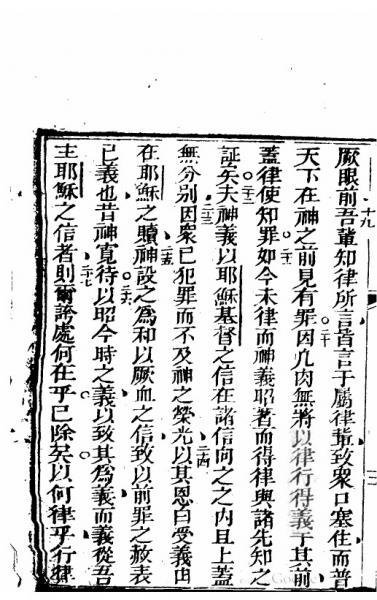 厥眼前十九吾輩知律所言者言于屬律輩致眾口塞住而普
天下在神之前見有罪二十因凢肉無將以律行得義于其前
蓋律使知罪二一如今未律而神義昭著而得律與諸先知之
証矣二二夫神義以耶穌基督之信在諸信向之之內且上蓋
無分別二三因眾已犯罪而不及神之榮光二四以其恩白受義由
在耶穌之贖二五神設之為和以厥血之信致以前罪之赦表
己義也昔神寬待二六以昭今時之義以致其為義而義從吾
主耶穌之信者二七則爾誇處何在乎已除矣以何律乎行律